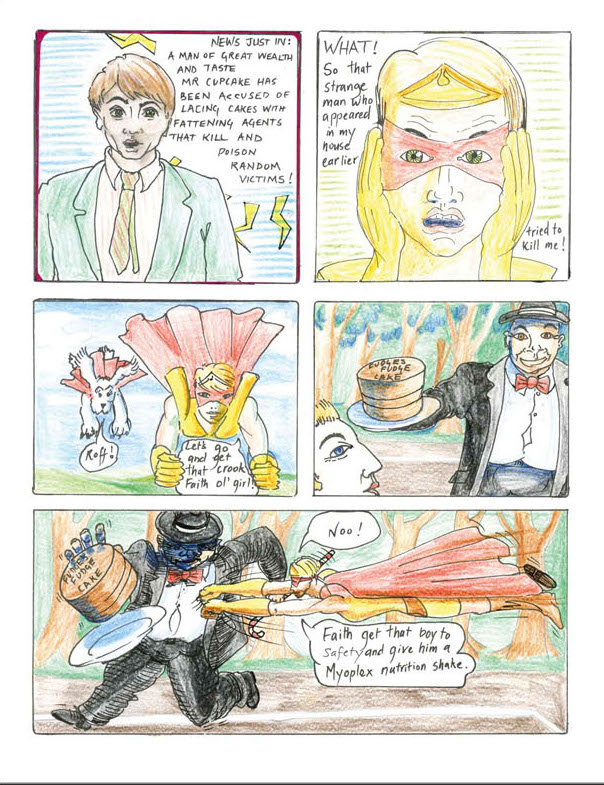 NEWS JUST IN:
A MAN OF GREAT WEALTH
AND TASTE
MR CUPCAKE HAS
BEEN ACCUSED OF
LACING CAKES WITH
FATTENING AGENTS
THAT KILL AND
POISON
RANDOM
VICTIMS!
WHAT!
So that
strange
man who
appeared
in my
house
earlier
tried to
kill me!
Roff!
Let's go
and get
that crook
Faith ol' girl!
FUDGES
FUDGE
CAKE
FUDGES
FUDGE
CAKE
Noo!
Faith get that boy to
safety and give him a
Myoplex nutrition shake.